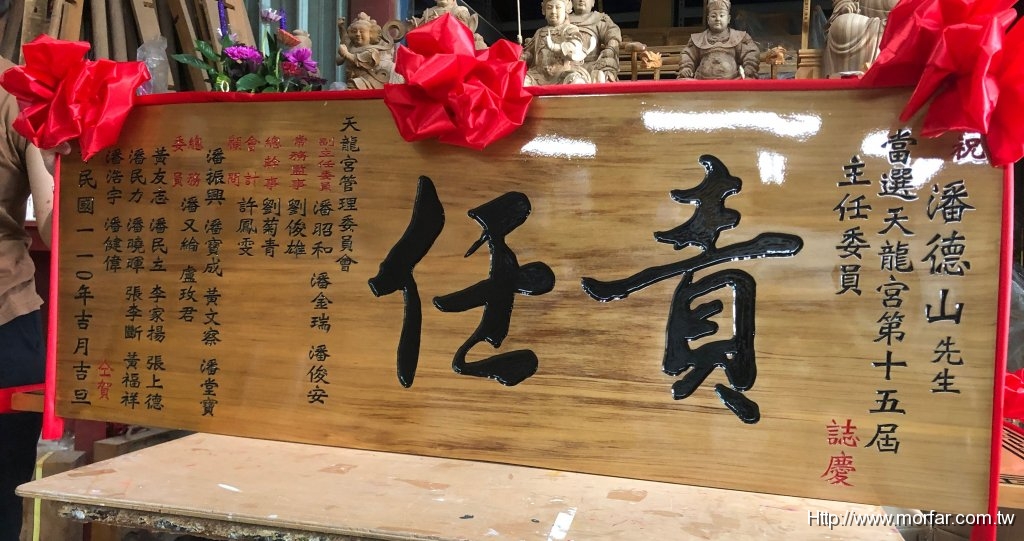 祝
潘德山先生
當選天龍宮第十五屆
主任委員
誌慶
責任
天龍宮管理委員會
副主任委員 潘昭和 潘金瑞 潘俊安
常務監事 劉俊雄
總幹事 劉菊青
會計 許鳳雯
顧問 潘振興 潘寶成 黃文察 潘堂寶
總務 潘又綸 盧玫君
委員 黃友志 潘民立 李家揚 張上德
潘民力 潘曉暉 張李斷 黃福祥
潘浩宇 潘健偉
仝賀
民國一一〇年吉月吉旦
Http://www.morfar.com.tw